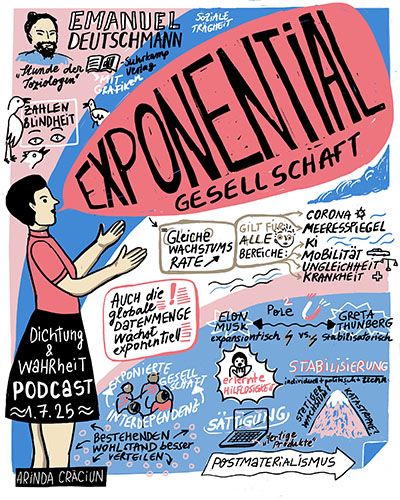 EMANUEL
DEUTSCHMANN
SOZIALE
TRÄGHEIT
„Stunde der
Soziologen"
Suhrkamp
Verlag
*MIT
GRAFIKEN
ZAHLEN
BLINDHEIT
EXPONENTIAL
GESELLSCHAFT
"GLEICHE
WACHSTUMS
RATE
GILT FÜR
ALLE
BEREICHE:
CORONA
MEERESSPIEGEL
KI
MOBILITÄT
UNGLEICHHEIT
KRANKHEIT
AUCH die
globale
DATENMENGE
wächst
exponentiell
!!
2
Pole
ELON
MUSK
expansionistisch
vs.
GRETA
THUNBERG
stabilisatorisch
Dichtung
&
WAHRHEIT
PODCAST
~1.7.25~
EXPONIERTE
GESELL
SCHAFT
INTERDEPENDENZ
erlernte
HILFLOSIGKEIT
STABILISIERUNG
individuell + politisch + TECHN.
SÄTTIGUNG
"fertige
Produkte"
KATASTROPHE?
BESTEHENDEN
WOHLSTAND besser
VERTEILEN
POSTMATERIALISMUS
ARINDA CRĂCIUN